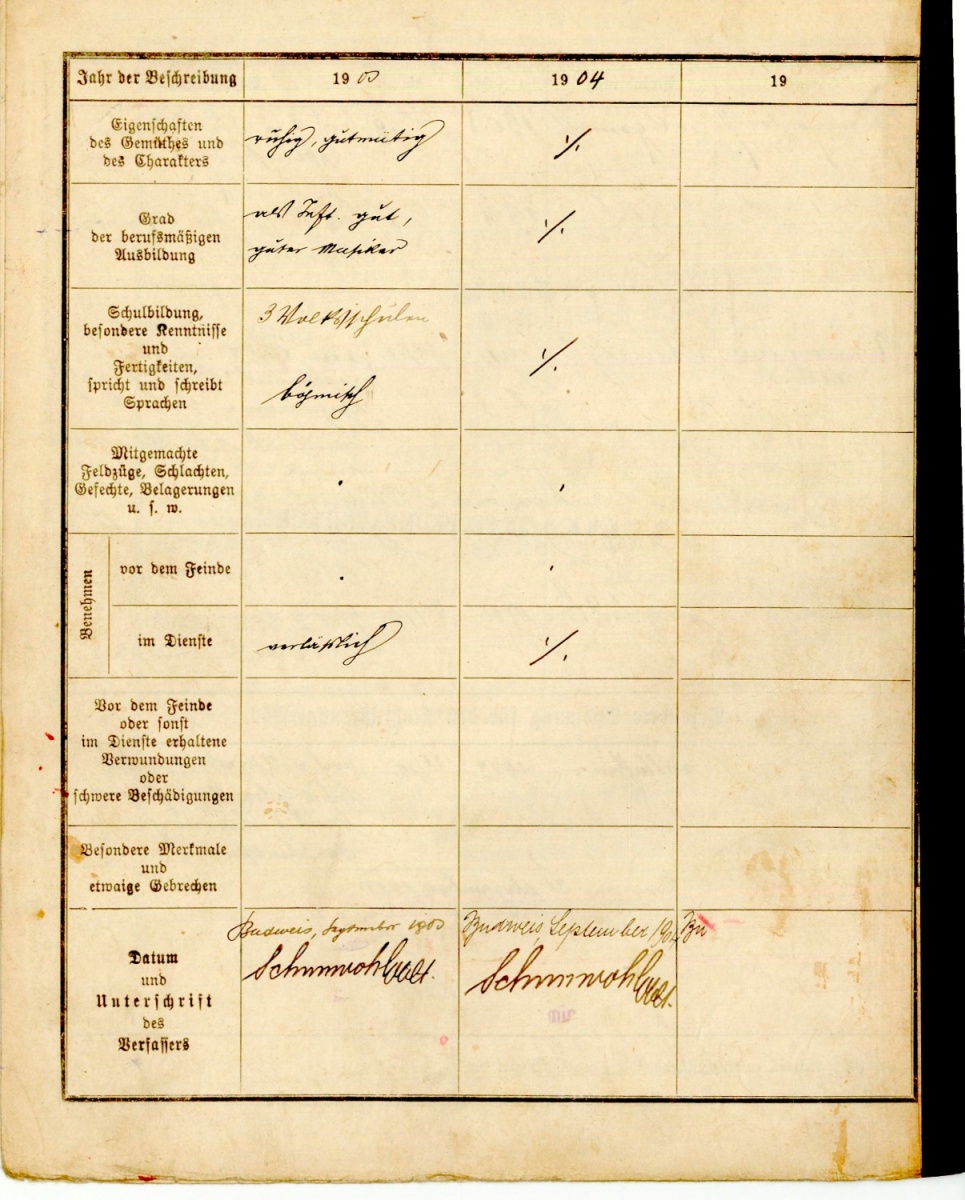 Jahr der Beschreibung 1903 1904 19
Eigenschaften
des Gemüthes und
des Charakters
ruhig, gutmütig
⁒
Grad
der berufsmäßigen
Ausbildung
als Inft. gut,
guter Musiker
⁒
Schulbildung,
besondere Kenntnisse
und
Fertigkeiten,
spricht und schreibt
Sprachen
3 Volksschulen
böhmisch
⁒
Mitgemachte
Feldzüge, Schlachten,
Gefechte, Belagerungen
u. s. w.
Benehmen
vor dem Feinde
im Dienste
verläßlich
⁒
Vor dem Feinde
oder sonst
im Dienste erhaltene
Verwundungen
oder
schwere Beschädigungen
Besondere Merkmale
und
etwaige Gebrechen
Datum
und
Unterschrift
des
Verfassers
Budweis, September 1903
Budweis, September 1904
Bu